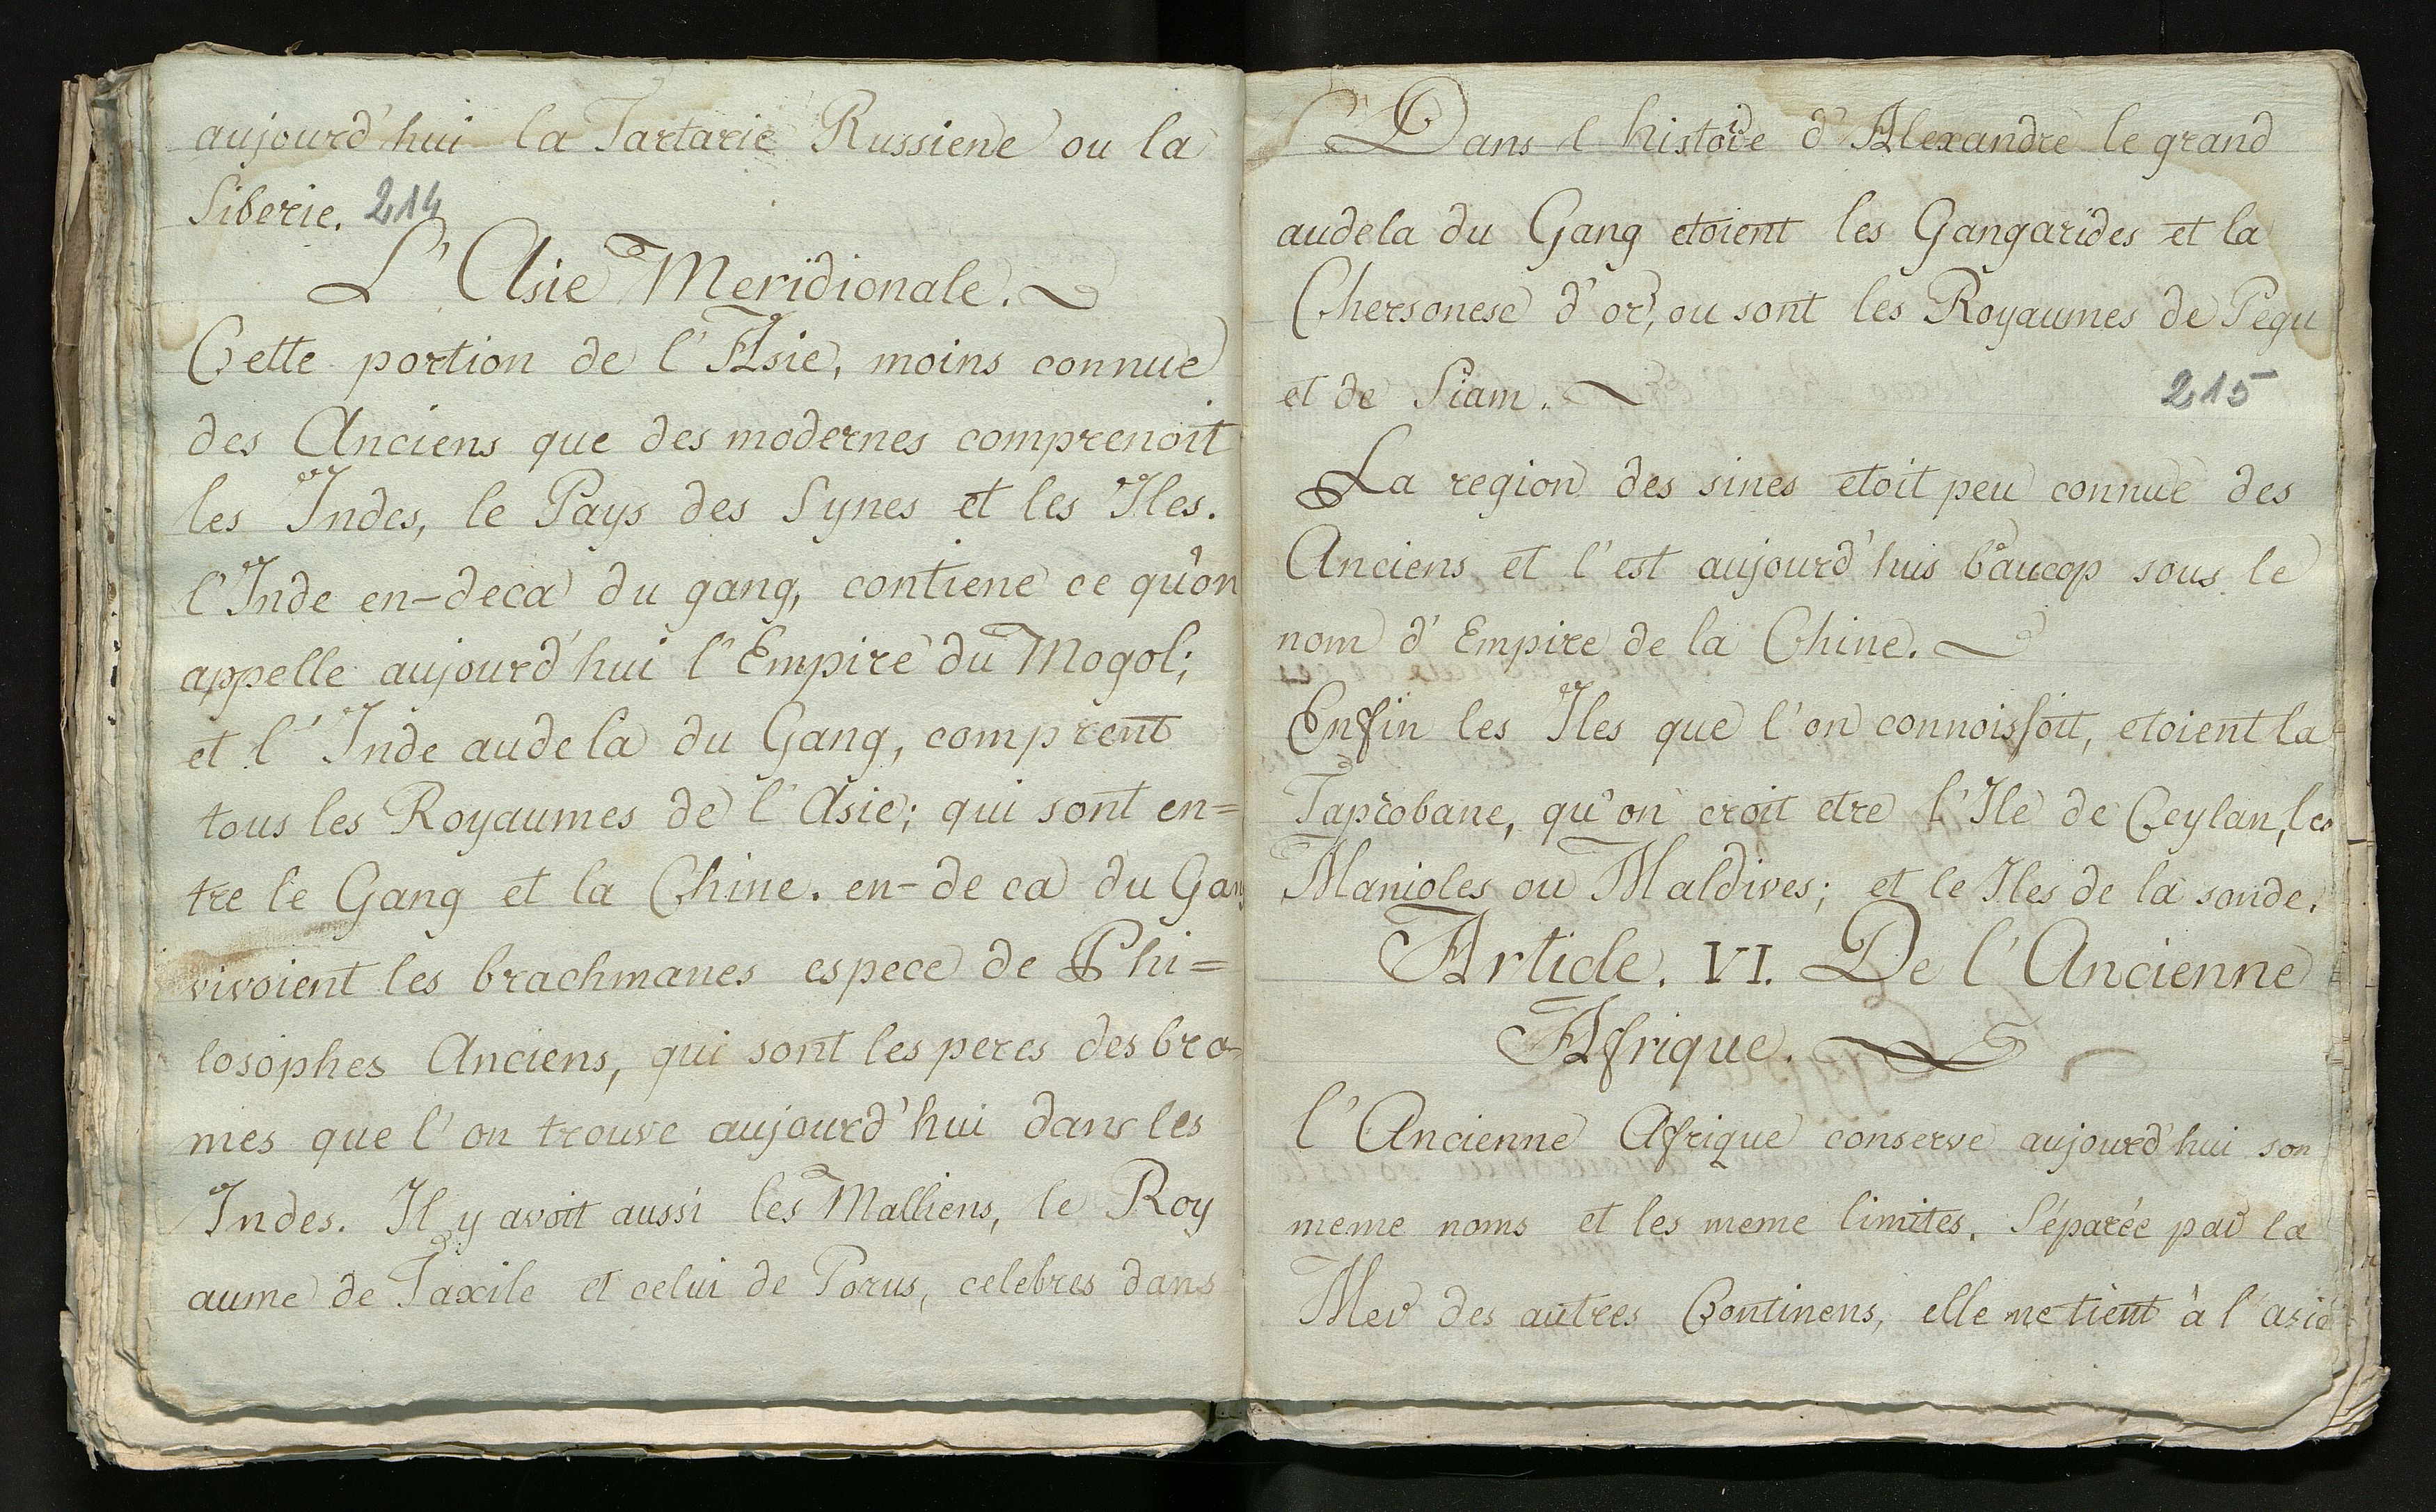 aujourd'hui la Tartarie Russiene ou la
Siberie. 214
L'Asie Meridionale.
Cette portion de l'Asie, moins connue
des Anciens que des modernes comprenoit
les Indes, le Pays des Synes et les Iles.
l'Inde en-deca du gang, contiene ce qu'on
appelle aujourd'hui l'Empire du Mogol;
et l'Inde audela du Gang, comprent
tous les Royaumes de l'Asie; qui sont en=
tre le Gang et la Chine. en-de ca du Gang
vivoient les brachmanes espece de Phi=
losophes Anciens, qui sont les peres des bra-
mes que l'on trouve aujourd'hui dans les
Indes. Il y avoit aussi les Malliens, le Roy
aume de Taxile et celui de Porus, celebres dans
Dans l histoire d'Alexandre le grand
audela du Gang etoient les Gangarides et la
Chersonese d'or, ou sont les Royaumes de Pegu
et de Siam. 215
La region des sines etoit peu connue des
Anciens et l'est aujourd'huis baucop sous le
nom d'Empire de la Chine.
Enfin les Iles que l'on connoissoit, etoient la
Taprobane, qu'on croit etre l'Ile de Ceylan, les
Manioles ou Maldives; et le Iles de la sonde.
Article. VI. De l'Ancienne
Afrique.
l'Ancienne Afrique conserve aujourd'hui son
meme noms et les meme limites. Séparée par la
Mer des autres Continens, elle ne tient à l'asie